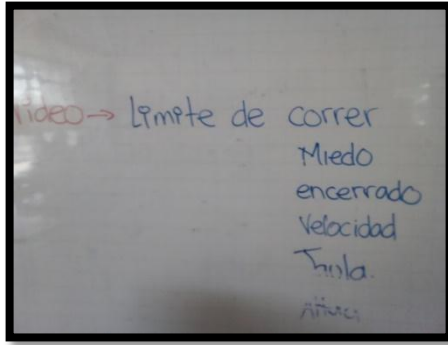 video → Limite de correr
Miedo
encerrado
Velocidad